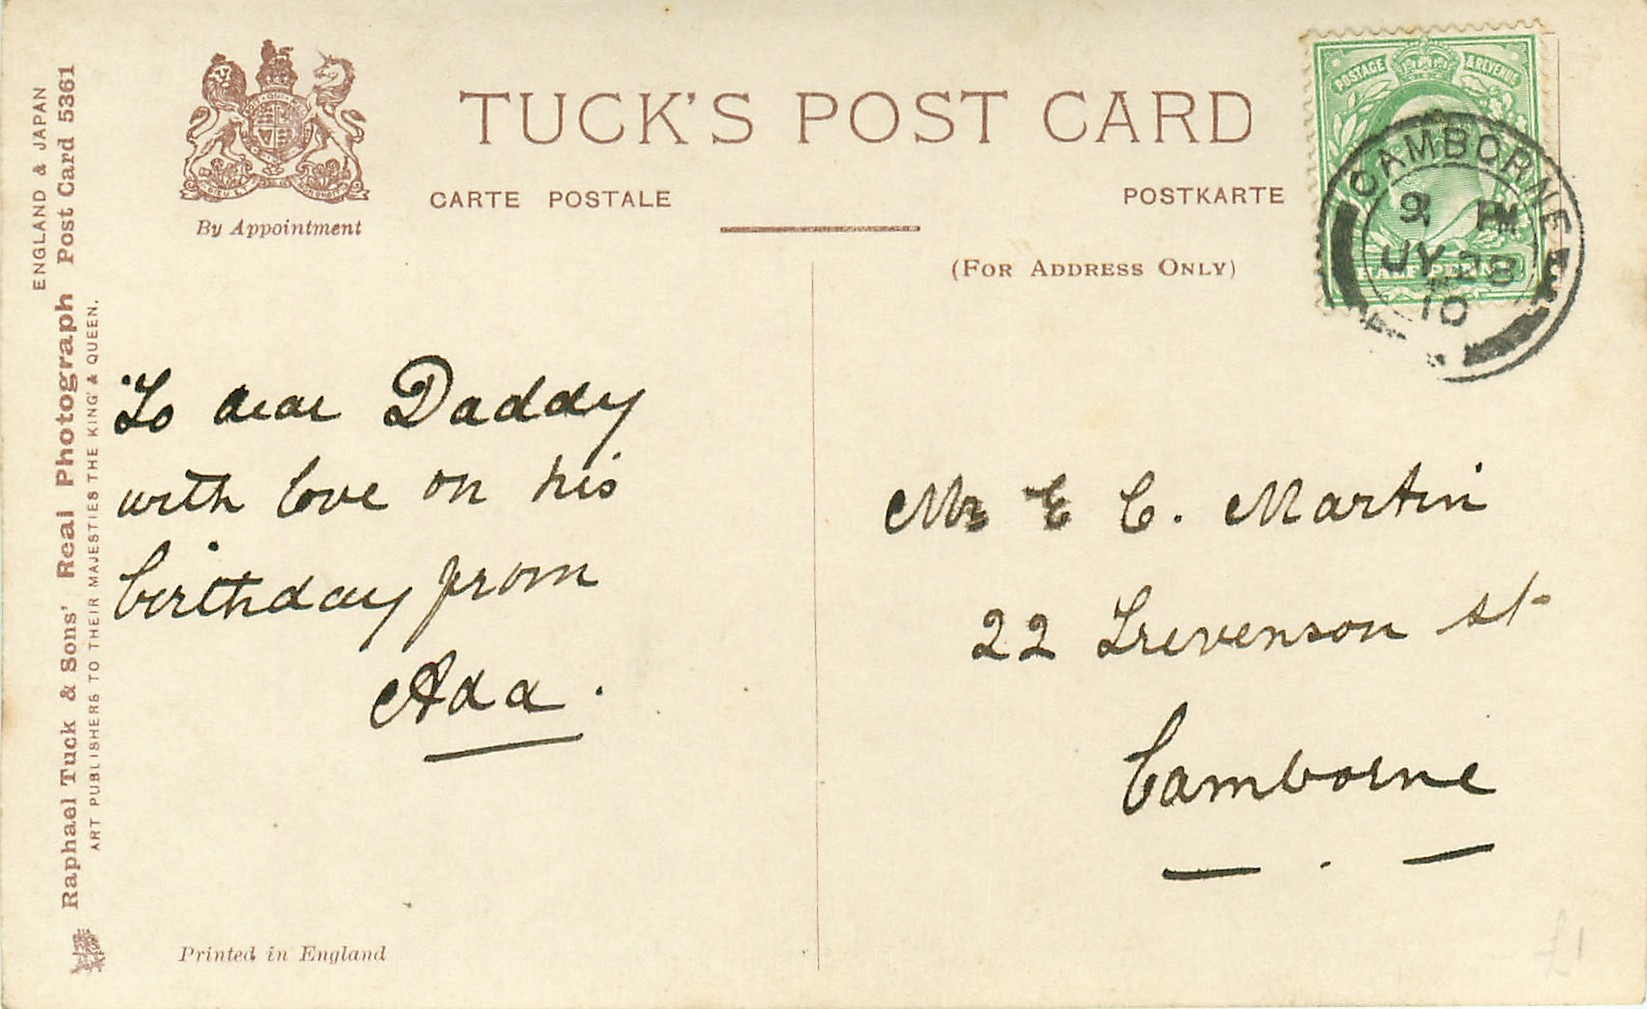 TUCK'S POST CARD
CARTE POSTALE
POSTKARTE
By Appointment
(FOR ADDRESS ONLY)
POSTAGE & REVENUE
HALFPENNY
CAMBORNE
9 PM
JY 28
10
ENGLAND & JAPAN
Raphael Tuck & Sons' Real Photograph Post Card 5361
ART PUBLISHERS TO THEIR MAJESTIES THE KING & QUEEN.
To dear Daddy
with love on his
birthday from
Ada.
Mr E C. Martin
22 Trevenson St
Camborne
Printed in England
£1